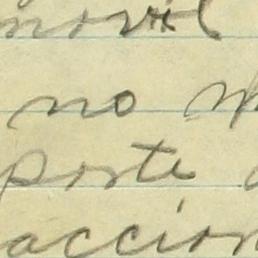 movil
no
porte
accion